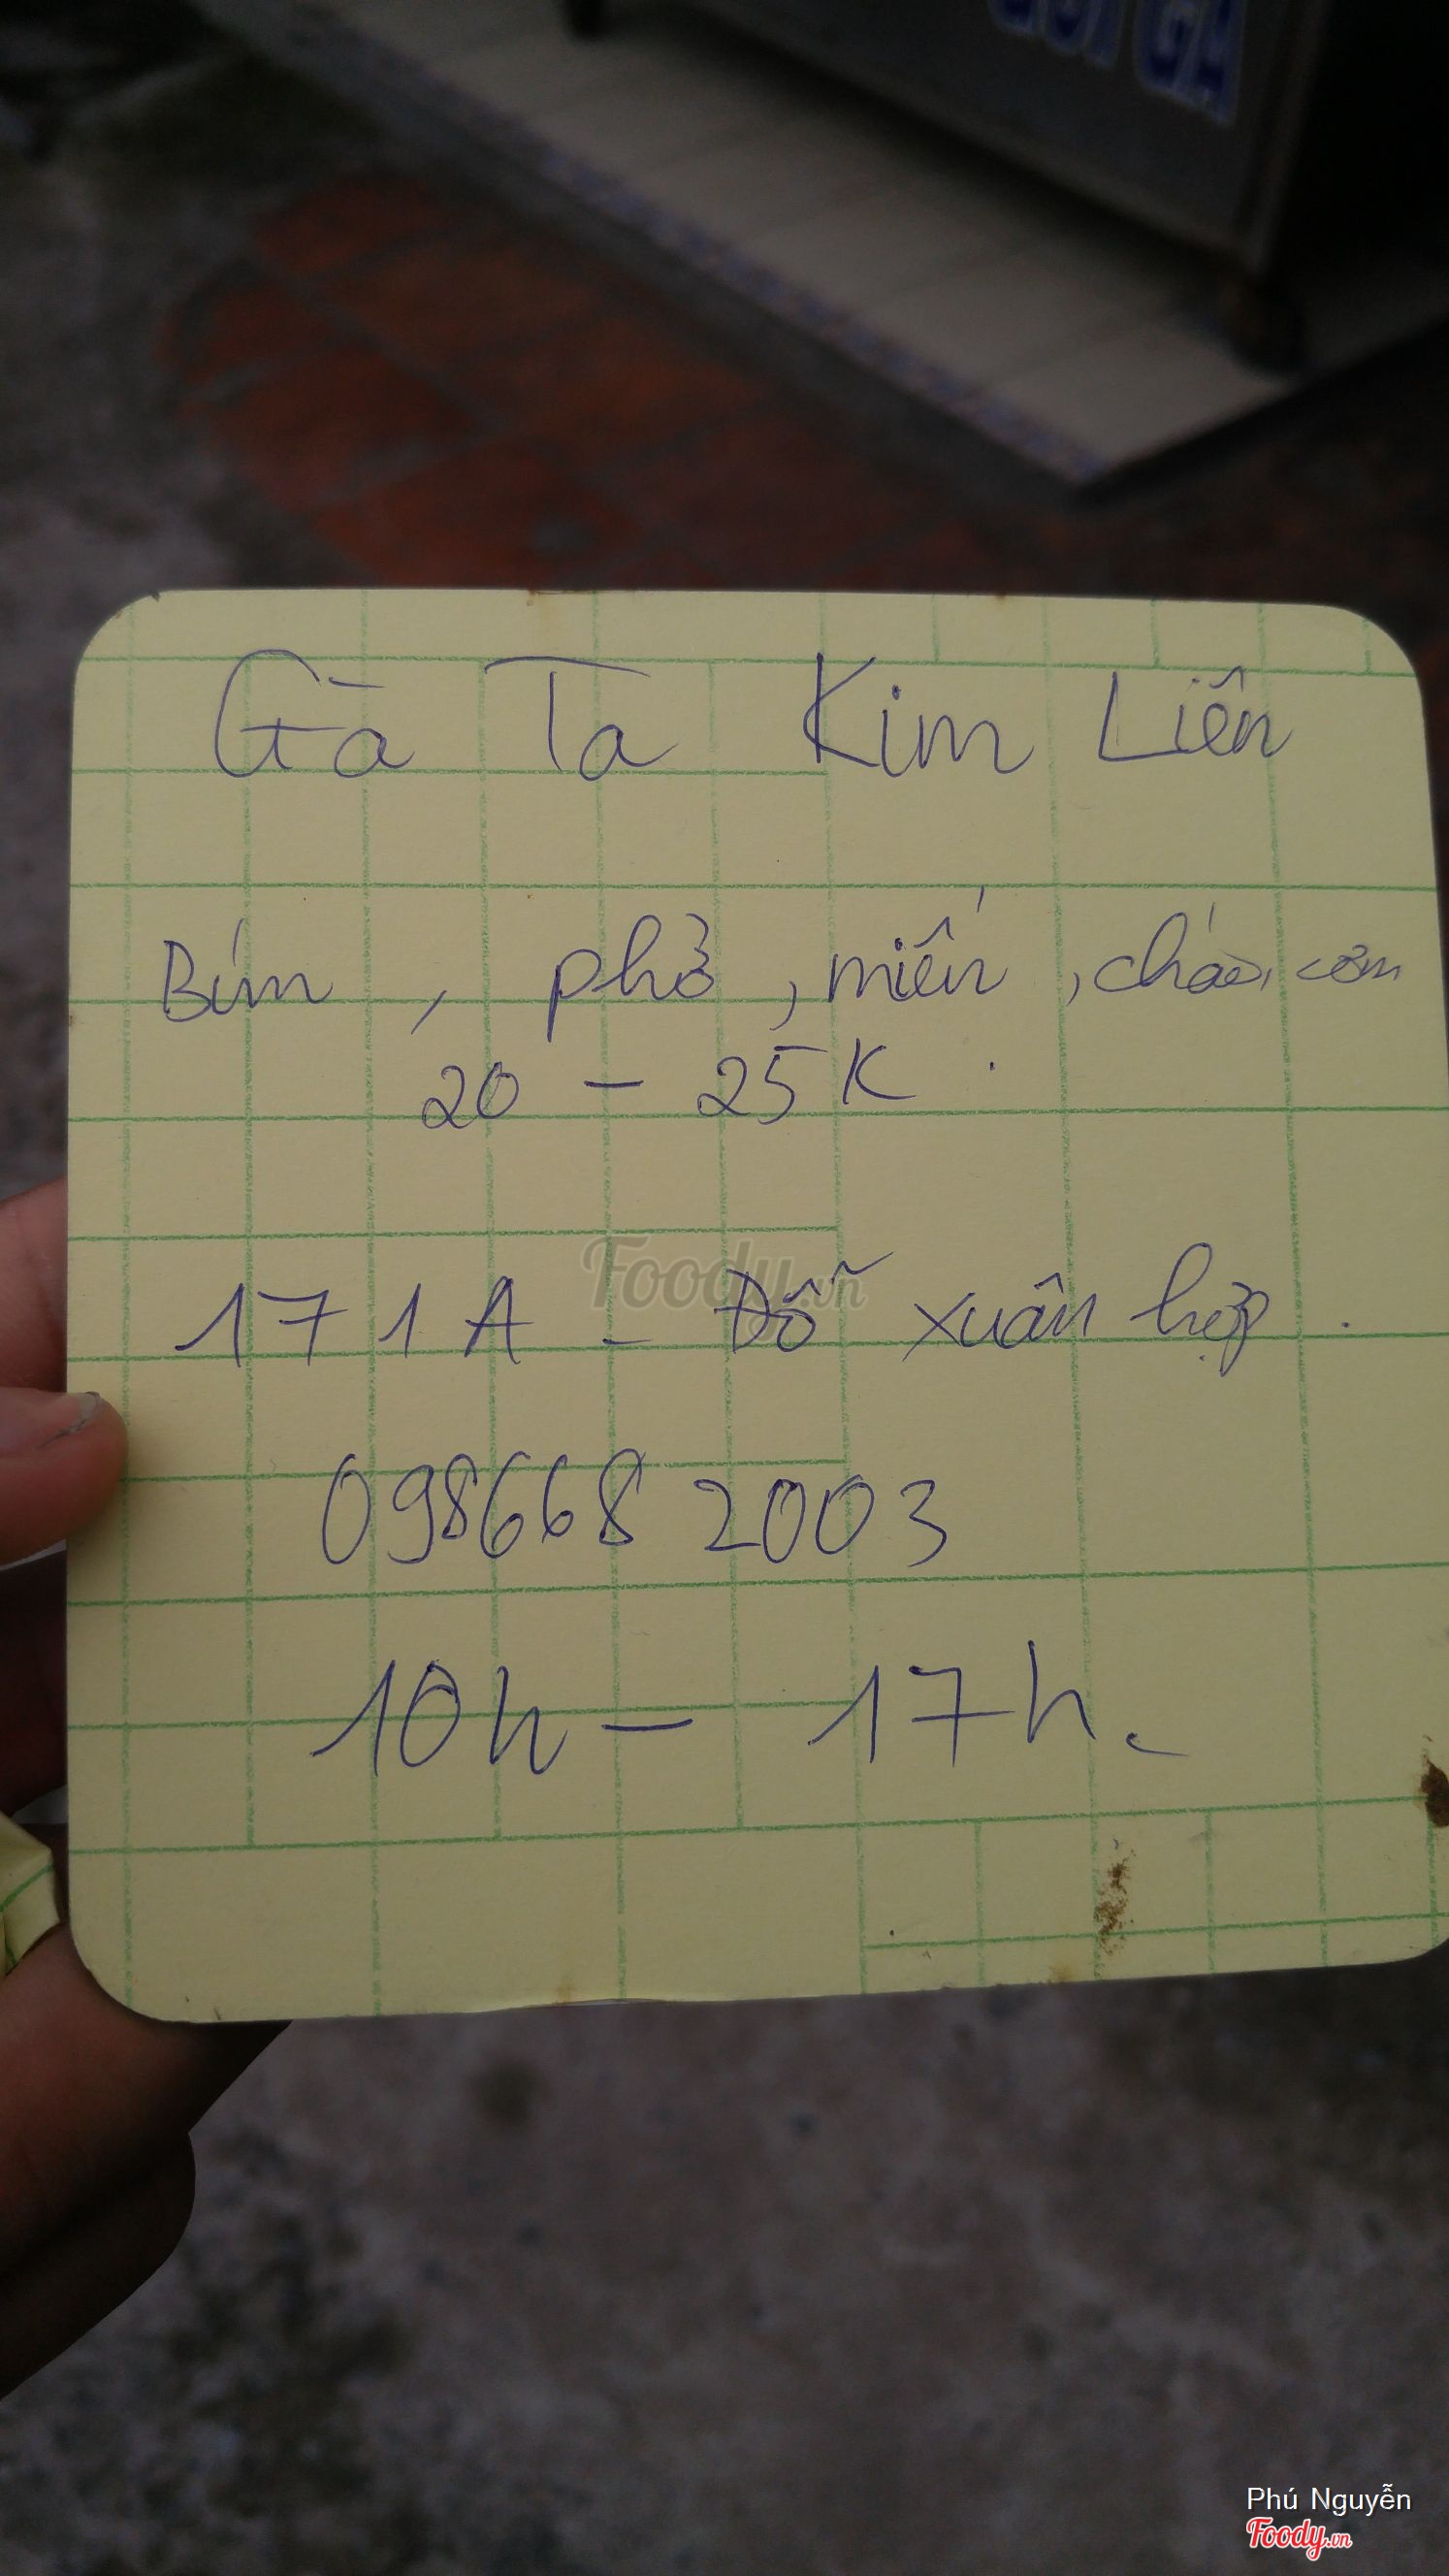 GỎI GÀ
Gà Ta Kim Liên
Bún, phở, miến, cháo, cơm
20 - 25K.
171A - Đỗ xuân hợp.
098668 2003
10h - 17h.
Foody.vn
Phú Nguyễn
Foody.vn